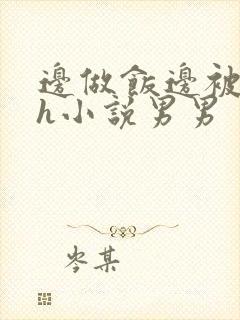 邊做飯邊被
h小說男男
岑某